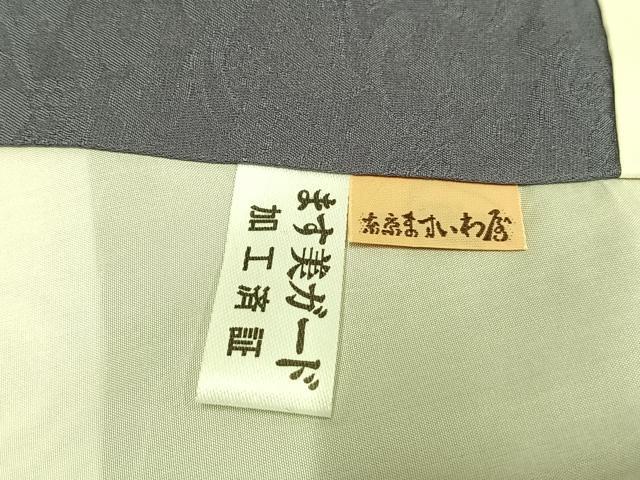 ます美ガード
加工済証
東京ますいわ屋